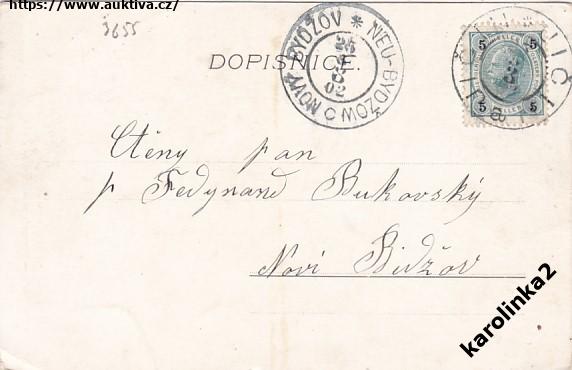 https://www.auktiva.cz/
3655
DOPISNICE.
NOVÝ BYDŽOV * NEU-BYDŽOW
25
02
5 5
5 5
JIČÍN
Ctěny pan
p Fedynand Bukovský
Noví Bidžov
karolinka2